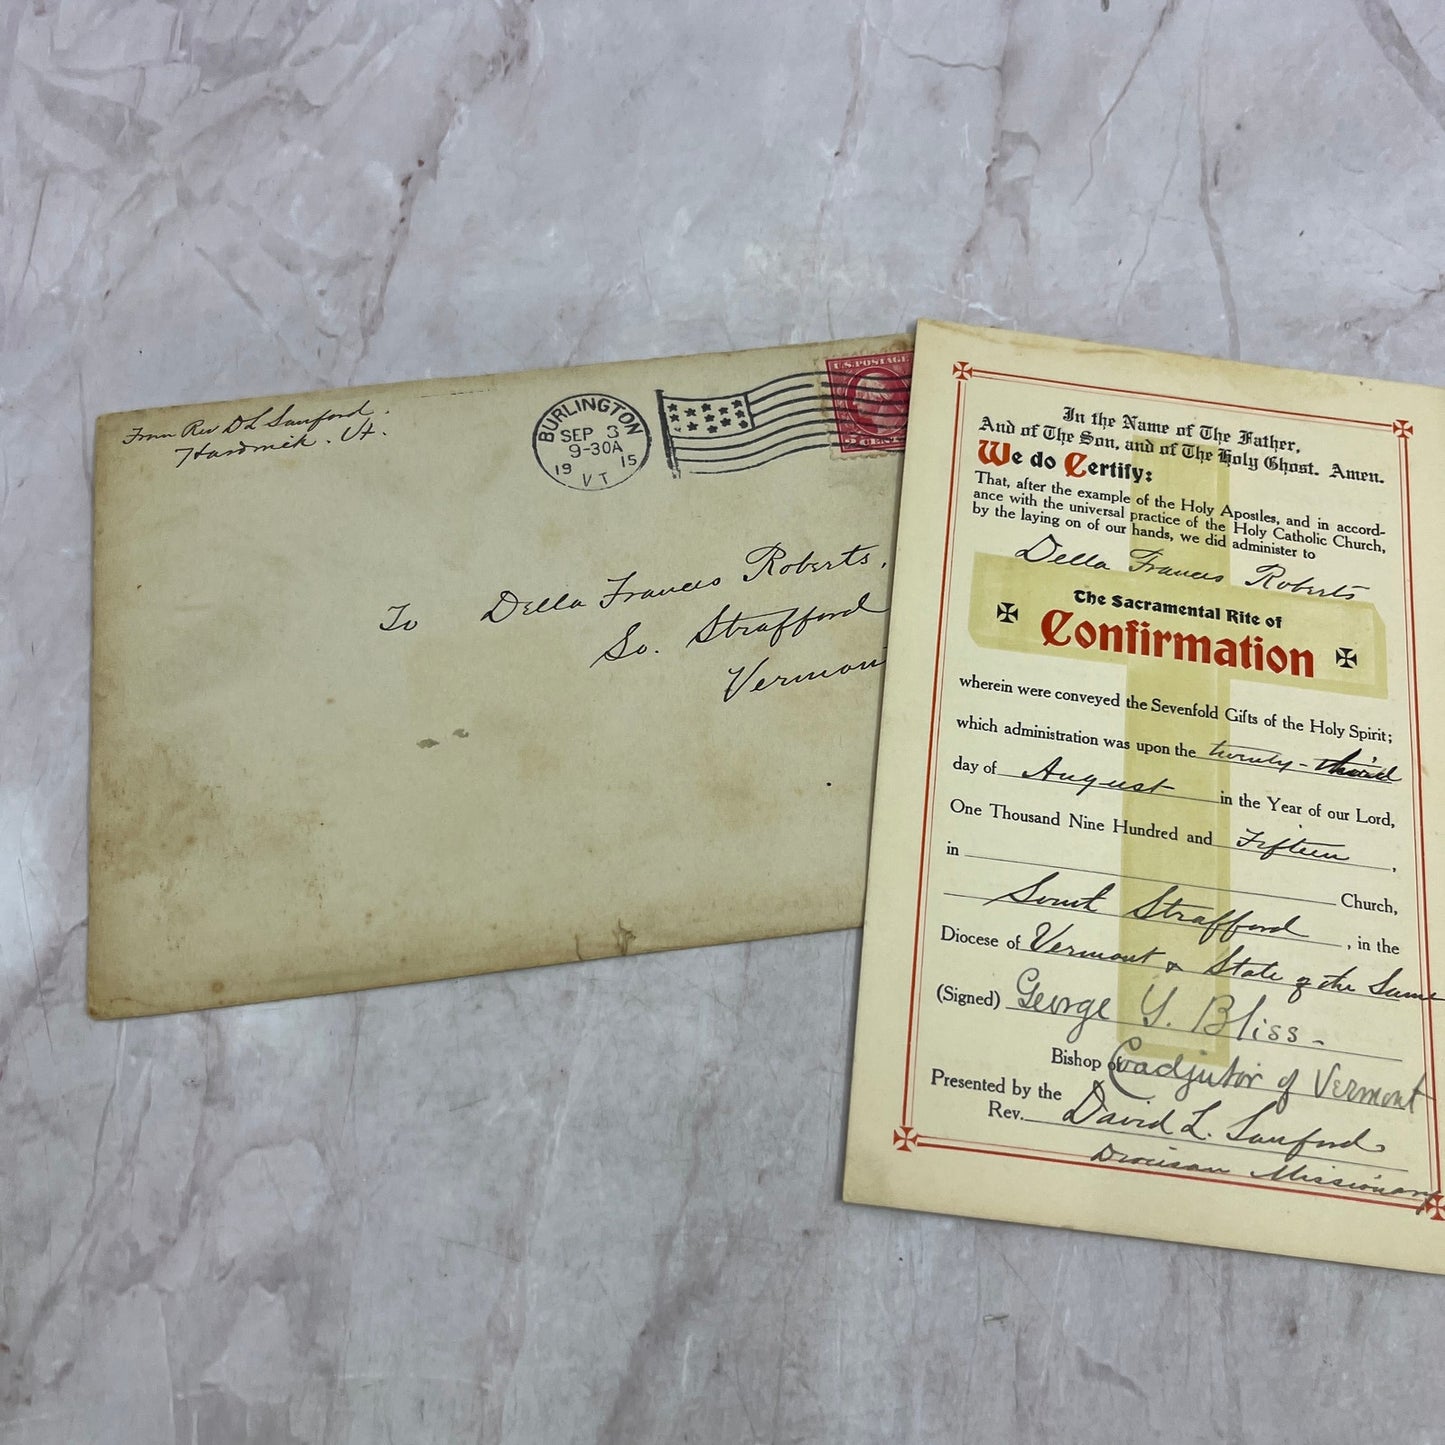 From Rev D L Sanford.
Hardwick. Vt.
BURLINGTON
SEP 3
9-30A
19 15
VT
U.S. POSTAGE
2 CENTS
To Della Francis Roberts,
So. Strafford
Vermont
In the Name of The Father,
And of The Son, and of The Holy Ghost. Amen.
We do Certify:
That, after the example of the Holy Apostles, and in accord-
ance with the universal practice of the Holy Catholic Church,
by the laying on of our hands, we did administer to
Della Francis Roberts
The Sacramental Rite of
Confirmation
wherein were conveyed the Sevenfold Gifts of the Holy Spirit;
which administration was upon the twenty-third
day of August in the Year of our Lord,
One Thousand Nine Hundred and Fifteen,
in Church,
South Strafford, in the
Diocese of Vermont & State of the Same
(Signed) George Y. Bliss-
Bishop of Coadjutor of Vermont
Presented by the
Rev. David L. Sanford
Diocesan Missionary